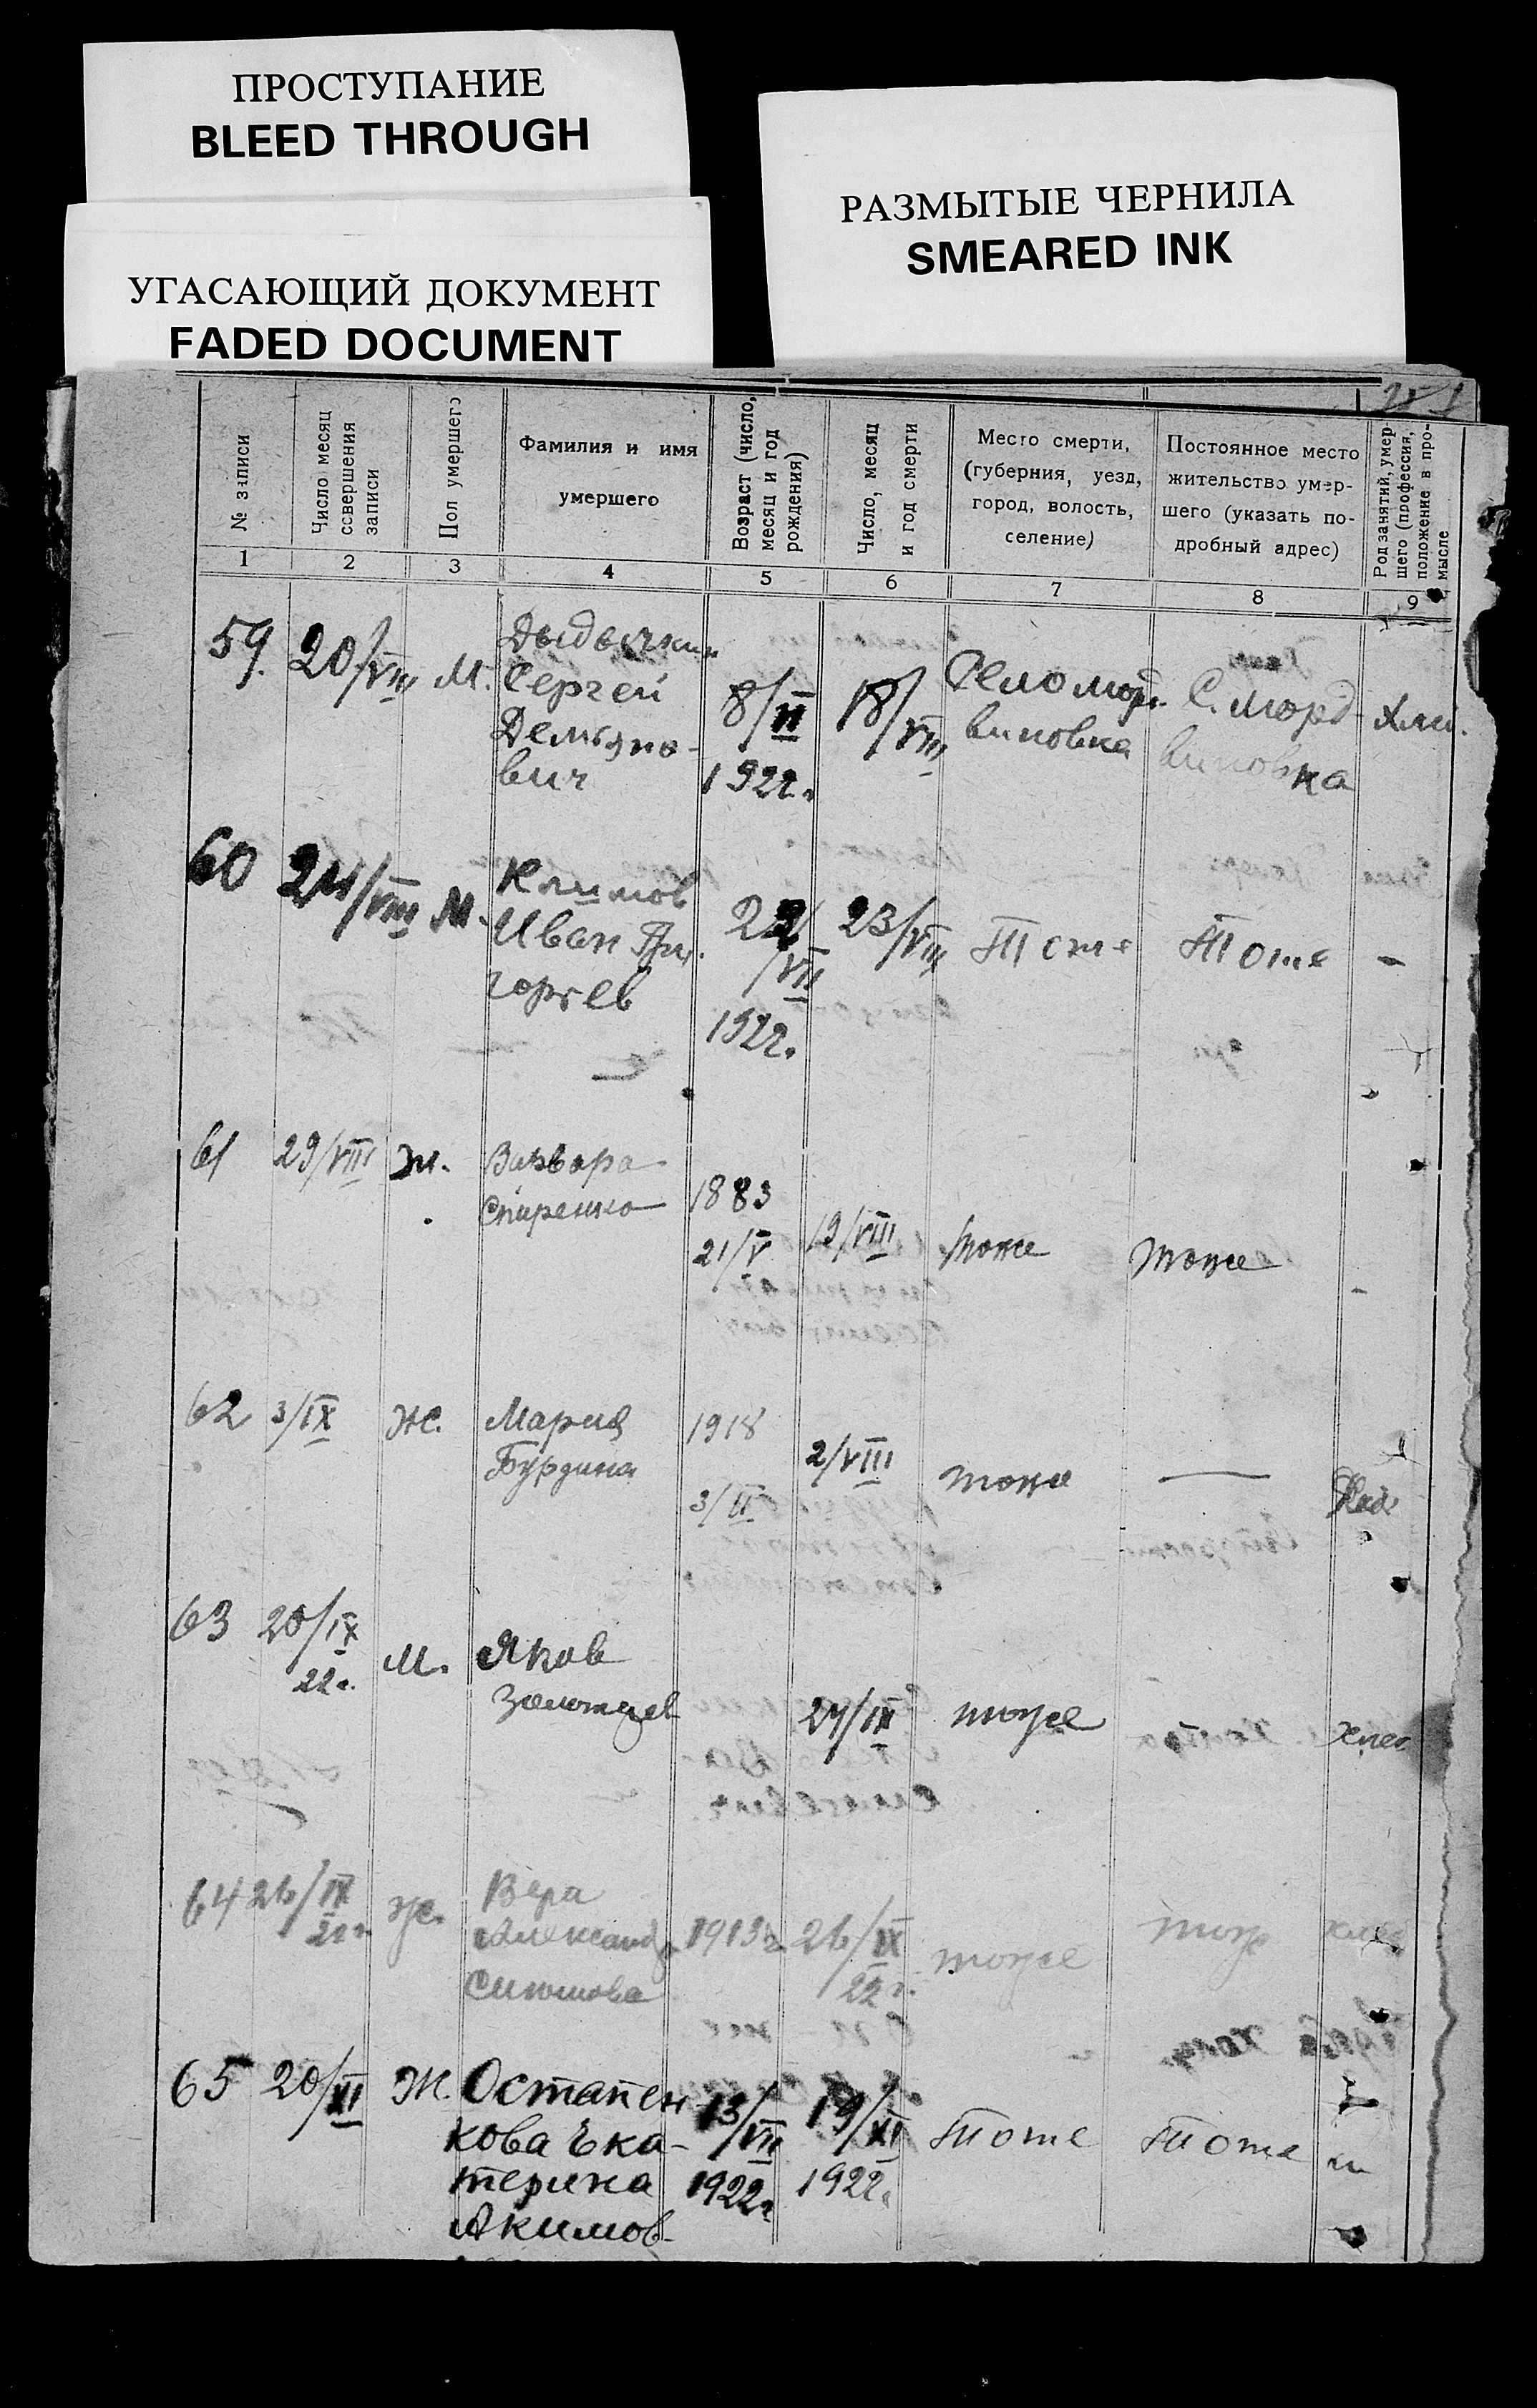 ПРОСТУПАНИЕ
BLEED THROUGH
УГАСАЮЩИЙ ДОКУМЕНТ
FADED DOCUMENT
РАЗМЫТЫЕ ЧЕРНИЛА
SMEARED INK
№ записи
Число месяц
совершения
записи
Пол умершего
Фамилия и имя
умершего
Возраст (число,
месяц и год
рождения)
Число, месяц
и год смерти
Место смерти,
(губерния, уезд,
город, волость,
селение)
Постоянное место
жительство умер-
шего (указать по-
дробный адрес)
Род занятий, умер-
шего (профессия,
положение в про-
мысле
1 2 3 4 5 6 7 8 9
59. 20/VIII М.
Сергей
Демьяно-
вич
8/II
1922.
18/VIII
виновка
С. Морд-
виновка
60 24/VIII М.
Климов
Иван Гри-
горьев
/VII
1922.
23/VIII
Тоже
Тоже
-
61 29/VIII Ж.
Варвара
Спиренко
1883
21/V
19/VIII
тоже
тоже
-
62 3/IX Ж.
Мария
Бурдина
1918
3/II
2/VIII
тоже
—
63 20/IX
22г.
М.
Яков
27/IX
тоже
64 26/IX
Ж.
Вера
1913г.
26/IX
22г.
тоже
тоже
65 20/XI Ж.
Остапен
кова Ека-
терина
Акимов-
13/VII
1922г.
19/XI
1922г.
Тоже
Тоже